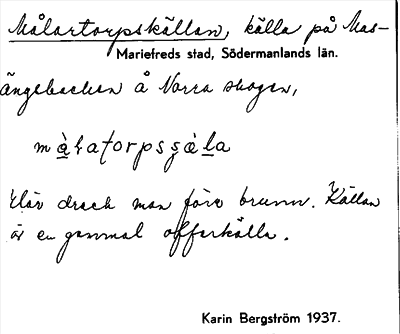 Målartorpskällan, källa på Mas-
Mariefreds stad, Södermanlands län.
ängsbacken å Norra skogen,
Här drack man före brunn. Källan
är en gammal offerkälla.
Karin Bergström 1937.